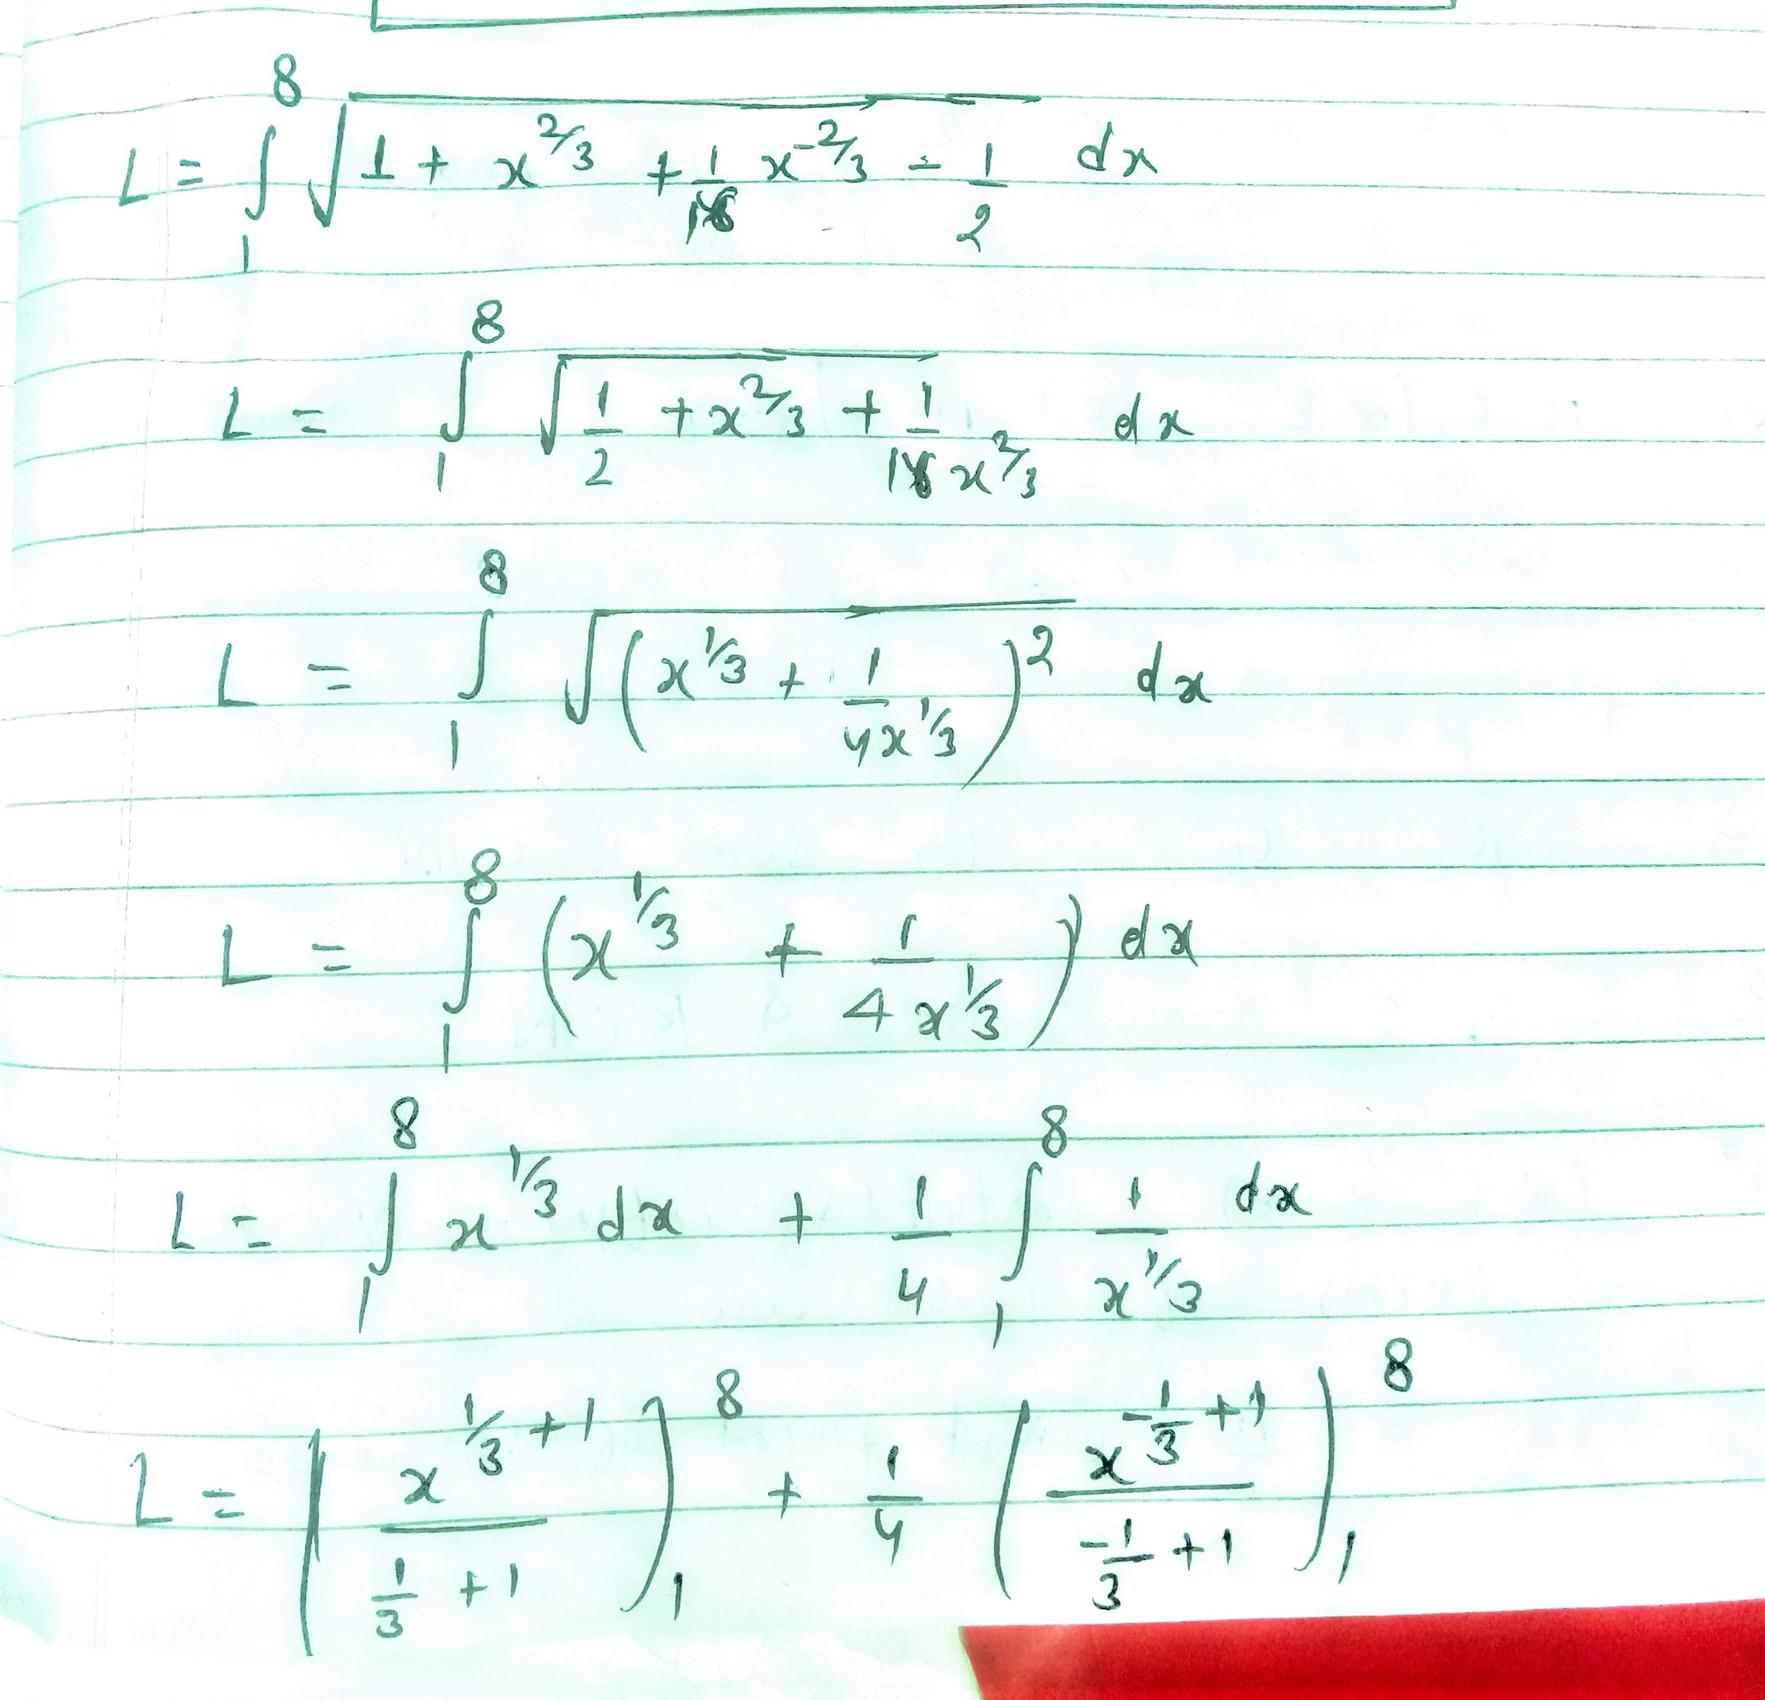 L = ∫₁⁸ √(1 + x^(2/3) + 1/16 x^(-2/3) - 1/2) dx
L = ∫₁⁸ √(1/2 + x^(2/3) + 1/(16 x^(2/3))) dx
L = ∫₁⁸ √((x^(1/3) + 1/(4x^(1/3)))^2) dx
L = ∫₁⁸ (x^(1/3) + 1/(4x^(1/3))) dx
L = ∫₁⁸ x^(1/3) dx + 1/4 ∫₁⁸ 1/x^(1/3) dx
L = (x^(1/3 + 1)/(1/3 + 1))₁⁸ + 1/4 (x^(-1/3 + 1)/(-1/3 + 1))₁⁸